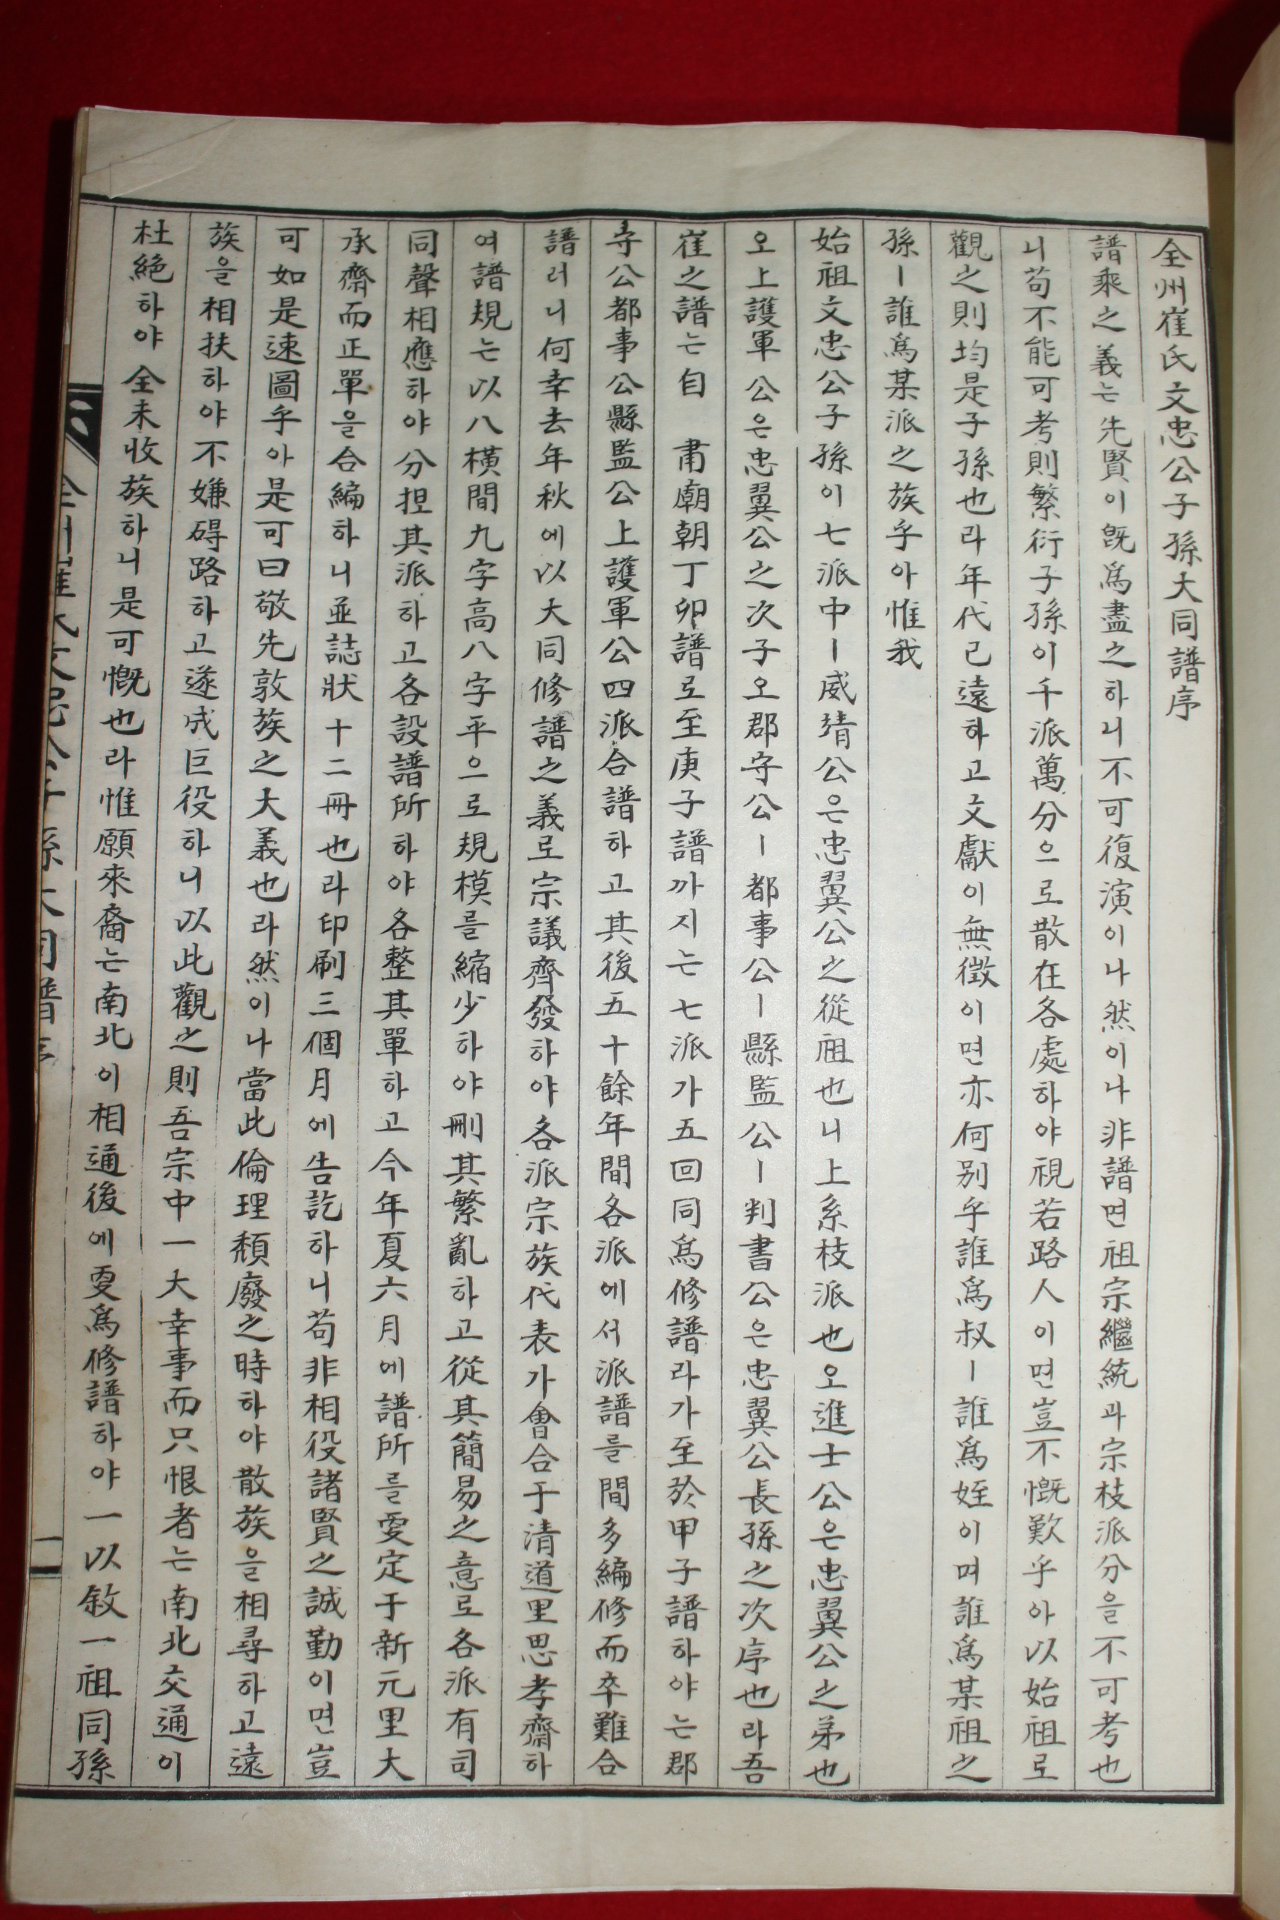 全州崔氏文忠公子孫大同譜序
譜乘之義는先賢이旣爲盡之하니不可復演이나然이나非譜면祖宗繼統과宗枝派分을不可考也
니苟不能可考則繁衍子孫이千派萬分으로散在各處하야視若路人이면豈不慨歎乎아以始祖로
觀之則均是子孫也라年代已遠하고文獻이無徵이면亦何別乎誰爲叔ㅣ誰爲姪이며誰爲某祖之
孫ㅣ誰爲某派之族乎아惟我
始祖文忠公子孫이七派中ㅣ威靖公은忠翼公之從祖也니上系枝派也오進士公은忠翼公之弟也
오上護軍公은忠翼公之次子오郡守公ㅣ都事公ㅣ縣監公ㅣ判書公은忠翼公長孫之次序也라吾
崔之譜는自 肅廟朝丁卯譜로至庚子譜까지는七派가五回同爲修譜라가至於甲子譜하야는郡
守公都事公縣監公上護軍公四派合譜하고其後五十餘年間各派에서派譜를間多編修而卒難合
譜러니何幸去年秋에以大同修譜之義로宗議齊發하야各派宗族代表가會合于淸道里思孝齋하
여譜規는以八橫間九字高八字平으로規模를縮少하야刪其繁亂하고從其簡易之意로各派有司
同聲相應하야分担其派하고各設譜所하야各整其單하고今年夏六月에譜所를更定于新元里大
承齋而正單을合編하니並誌狀十二冊也라印刷三個月에告訖하니苟非相役諸賢之誠勤이면豈
可如是速圖乎아是可曰敬先敦族之大義也라然이나當此倫理頹廢之時하야散族을相尋하고遠
族을相扶하야不嫌碍路하고遂成巨役하니以此觀之則吾宗中一大幸事而只恨者는南北交通이
杜絶하야全未收族하니是可慨也라惟願來裔는南北이相通後에更爲修譜하야一以敘一祖同孫
全州崔氏文忠公子孫大同譜序
一